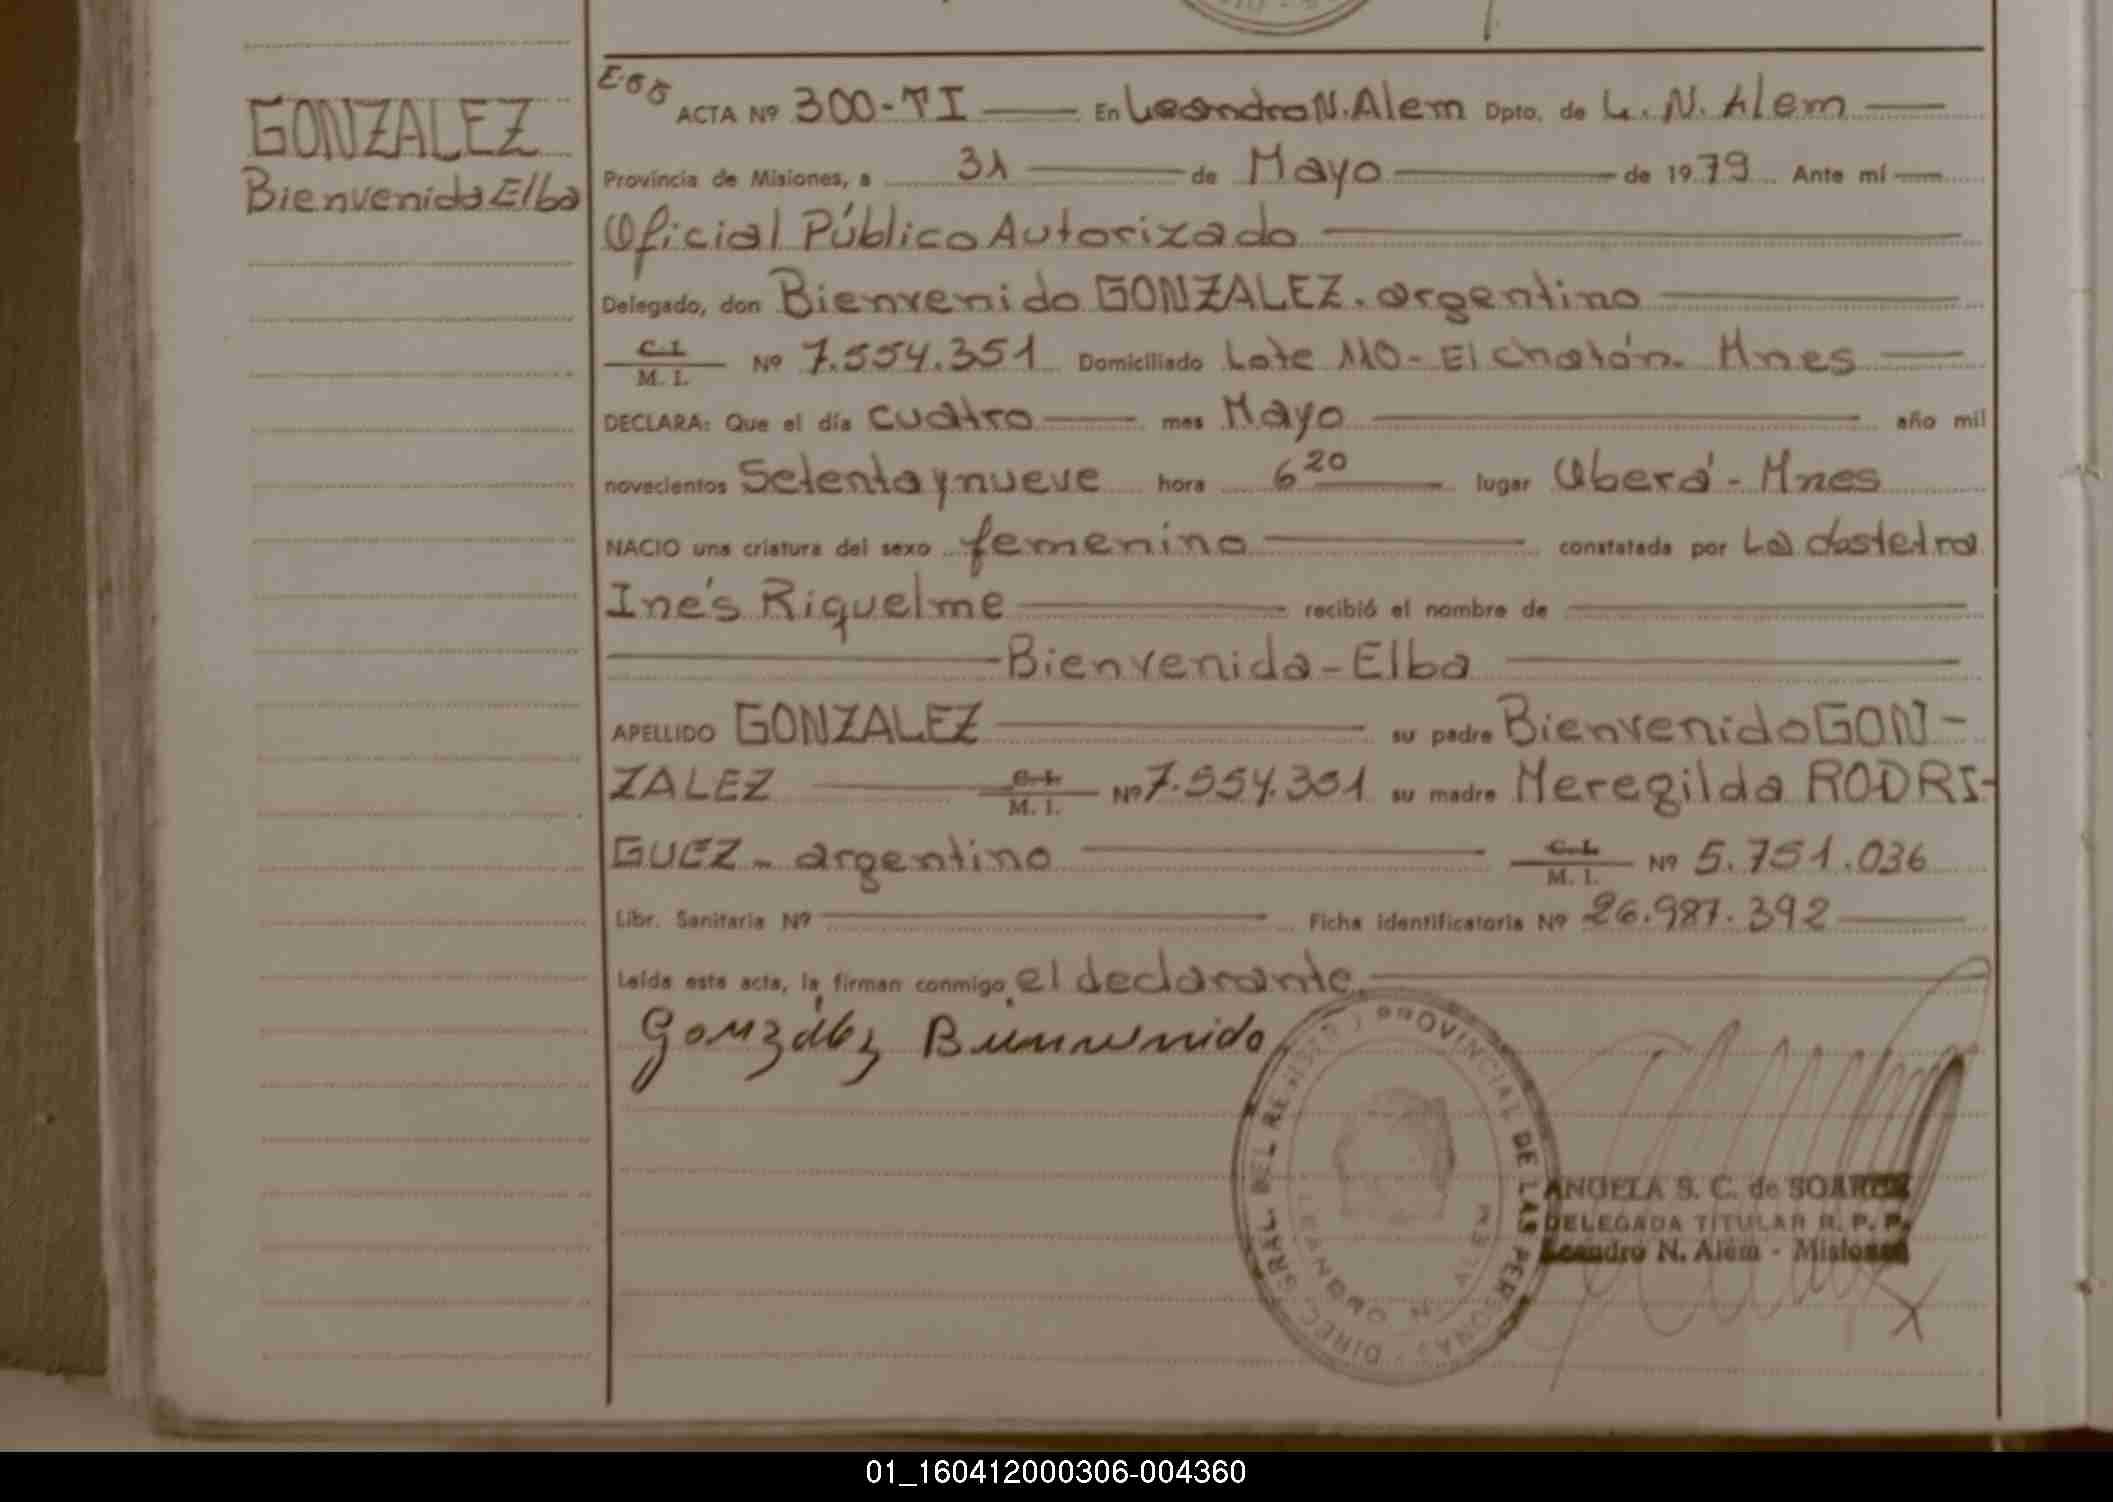 GONZALEZ
Bienvenida Elba
ACTA Nº 300-TI En Leandro N. Alem Dpto. de L. N. Alem
Provincia de Misiones, a 31 de Mayo de 1979 Ante mí
Oficial Público Autorizado
Delegado, don Bienvenido GONZALEZ. argentino
C.I. M. I. Nº 7.554.351 Domiciliado Lote 110 - El Chatón - Mnes
DECLARA: Que el día cuatro mes Mayo año mil
novecientos Setenta y nueve hora 6 20 lugar Oberá - Mnes
NACIO una criatura del sexo femenino constatada por La obstetra
Inés Riquelme recibió el nombre de
Bienvenida - Elba
APELLIDO GONZALEZ su padre Bienvenido GON-
ZALEZ C.I. M. I. Nº 7.554.351 su madre Meregilda RODRI-
GUEZ - argentino C.I. M. I. Nº 5.751.036
Libr. Sanitaria Nº Ficha identificatoria Nº 26.987.392
Leída esta acta, la firman conmigo, el declarante.
González Bienvenido
DIREC. GRAL. DEL REGISTRO PROVINCIAL DE LAS PERSONAS
LEANDRO N. ALEM
ANGELA S. C. de SOAREZ
DELEGADA TITULAR R. P. P.
Leandro N. Alem - Misiones
01_160412000306-004360